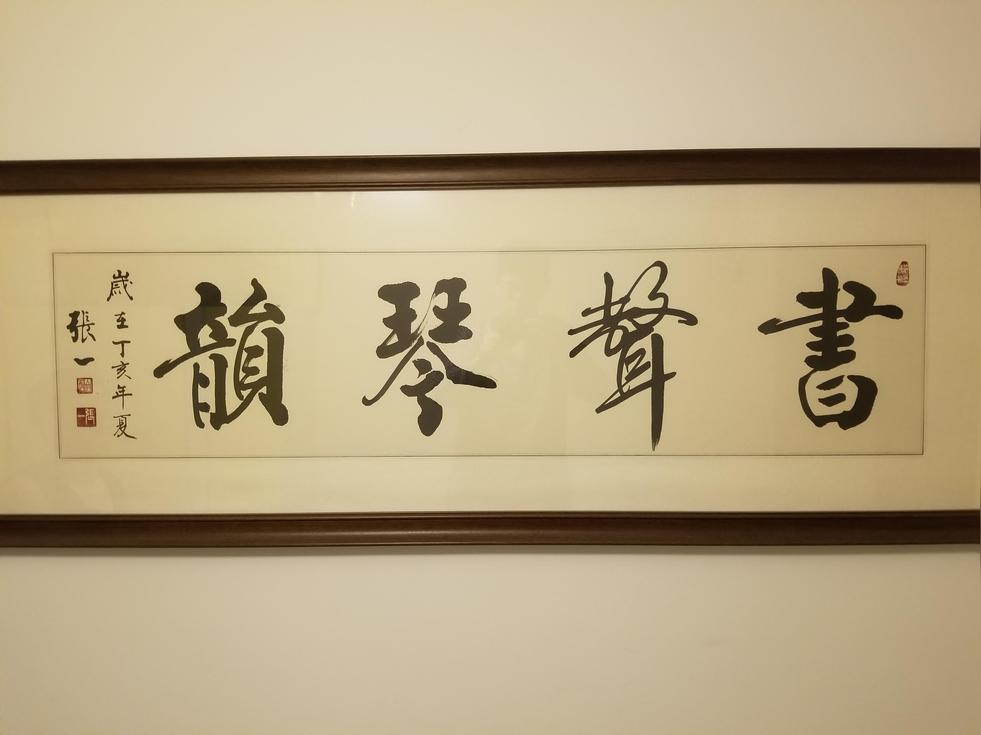 書聲琴韻
歲在丁亥年夏
張一